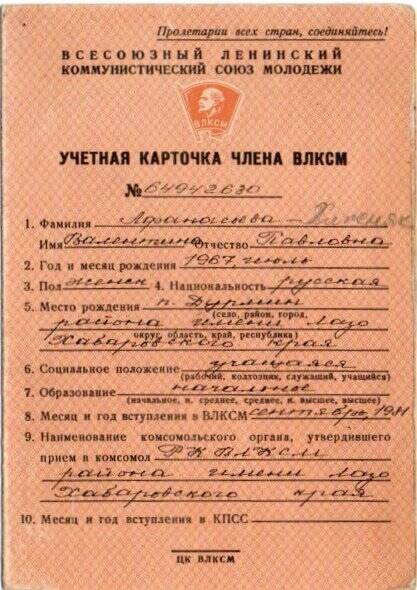 Пролетарии всех стран, соединяйтесь!
ВСЕСОЮЗНЫЙ ЛЕНИНСКИЙ
КОММУНИСТИЧЕСКИЙ СОЮЗ МОЛОДЕЖИ
ВЛКСМ
УЧЕТНАЯ КАРТОЧКА ЧЛЕНА ВЛКСМ
№ 64942630
1. Фамилия Афанасьева –
Имя Валентина Отчество Павловна
2. Год и месяц рождения 1967, июль
3. Пол женск 4. Национальность русская
5. Место рождения п. Дурмин
(село, район, город,
района имени Лазо
округ, область, край, республика)
Хабаровского края
6. Социальное положение учащаяся
(рабочий, колхозник, служащий, учащийся)
7. Образование начальное
(начальное, н. среднее, среднее, н. высшее, высшее)
8. Месяц и год вступления в ВЛКСМ сентябрь, 1981
9. Наименование комсомольского органа, утвердившего
прием в комсомол РК ВЛКСМ
района имени Лазо
Хабаровского края
10. Месяц и год вступления в КПСС
ЦК ВЛКСМ